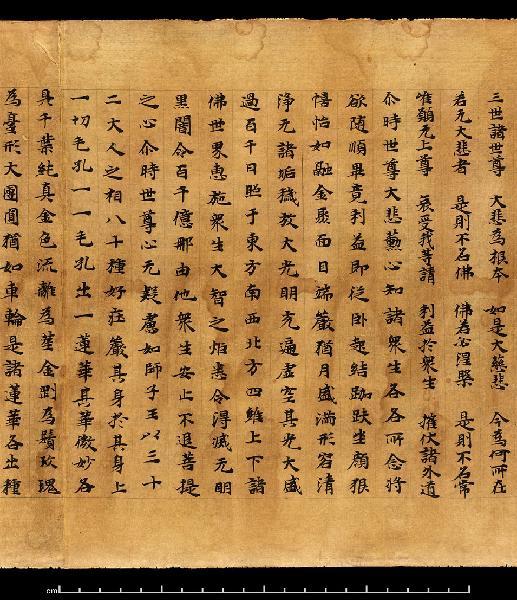 三世諸世尊 大悲為根本 如是大慈悲 今為何所在
若无大悲者 是則不名佛 佛若必涅槃 是則不名常
唯願无上尊 哀受我等請 利益於衆生 摧伏諸外道
尒時世尊大悲薰心知諸衆生各各所念將
欲隨順畢竟利益即從卧起結跏趺坐顏狠
憘怡如融金聚面目端嚴猶月盛滿形容清
淨无諸垢穢放大光明充遍虛空其光大盛
過百千日照于東方南西北方四維上下諸
佛世界惠施衆生大智之炬悉令得滅无明
黑闇令百千億那由他衆生安止不退菩提
之心尒時世尊心无疑慮如師子王以三十
二大人之相八十種好莊嚴其身於其身上
一切毛孔一一毛孔出一蓮華其華微妙各
具千葉純真金色流離為莖金剛為鬚玫瑰
為臺形大團圓猶如車輪是諸蓮華各出種
cm